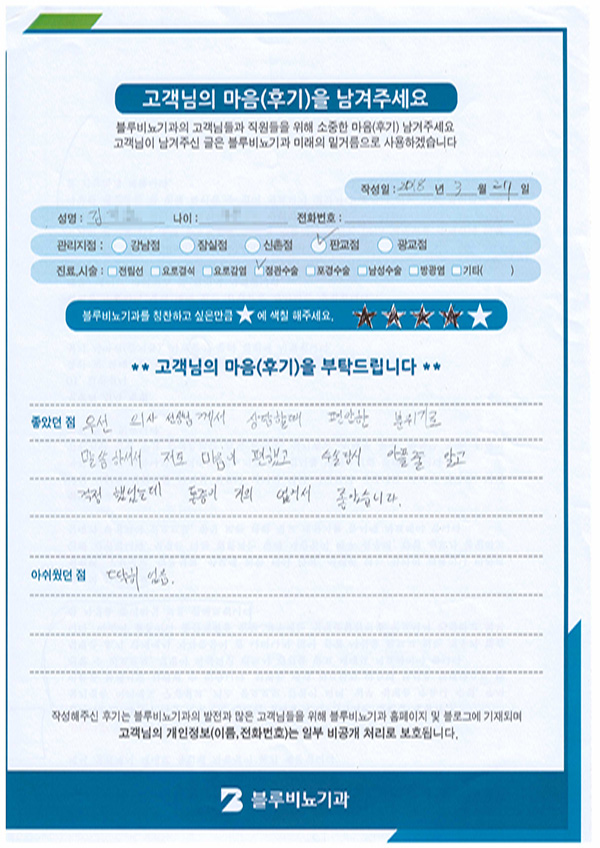 고객님의 마음(후기)을 남겨주세요
블루비뇨기과의 고객님들과 직원들을 위해 소중한 마음(후기) 남겨주세요
고객님이 남겨주신 글은 블루비뇨기과 미래의 밑거름으로 사용하겠습니다
작성일 : 2018 년 3 월 24 일
성명 : 김 나이 : 전화번호 :
관리지점 : 강남점 잠실점 신촌점 판교점 광교점
진료,시술 : 전립선 요로결석 요로감염 정관수술 포경수술 남성수술 방광염 기타( )
블루비뇨기과를 칭찬하고 싶은만큼 ★에 색칠 해주세요. ★★★★★
** 고객님의 마음(후기)을 부탁드립니다 **
좋았던 점 우선 의사 선생님께서 상담할때 편안한 분위기로
말씀하셔서 저도 마음이 편했고 수술당시 아플줄 알고
걱정 했었는데 통증이 거의 없어서 좋았습니다.
아쉬웠던 점 딱히 없음.
작성해주신 후기는 블루비뇨기과의 발전과 많은 고객님들을 위해 블루비뇨기과 홈페이지 및 블로그에 기재되며
고객님의 개인정보(이름,전화번호)는 일부 비공개 처리로 보호됩니다.
블루비뇨기과